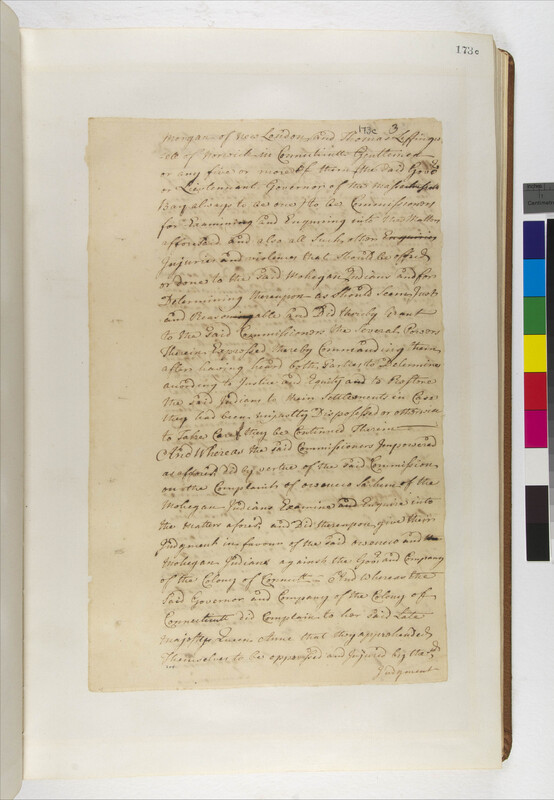 173c
173c 3
Morgan of New London and Thomas Leffingw
ell of Norwich in Connecticutt Gentlemen
or any five or more of them the said Govr
or Lieutenant Governor of the Massachusets
Bay always to be one to be Commissioners
for Examining and Enquiring into the Matter
aforesaid and also all such other
Injuries and violences that should be offerd
or done to the said Mohegan Indians and for
Determining thereupon as should seem Just
and Reasonable and Did thereby Grant
to the said Commissioners the Several Powers
Therein Expressed thereby Commanding them
after having heard both parties to Determine
according to Justice and Equity and to Restore
the said Indians to their Settlements in Case
they had been unjustly Disposessed or otherwise
to Take Care they be Continued Therein
And Whereas the said Commissioners Impowered
as aforesd did by vertue of the said Commission
on the Complaint of Sachem of the
Mohegan Indians Examine and Enquire into
the matter aforesd and Did thereupon give their
Judgment in favour of the said and
Mohegan Indians against the Govr and Company
of the Colony of Connectt And Whereas the
said Governor and Company of the Colony of
Connecticutt did Complain to her said Late
Majesty Queen Anne that they apprehended
Themselves to be oppressed and Injured by the sd
Judgment